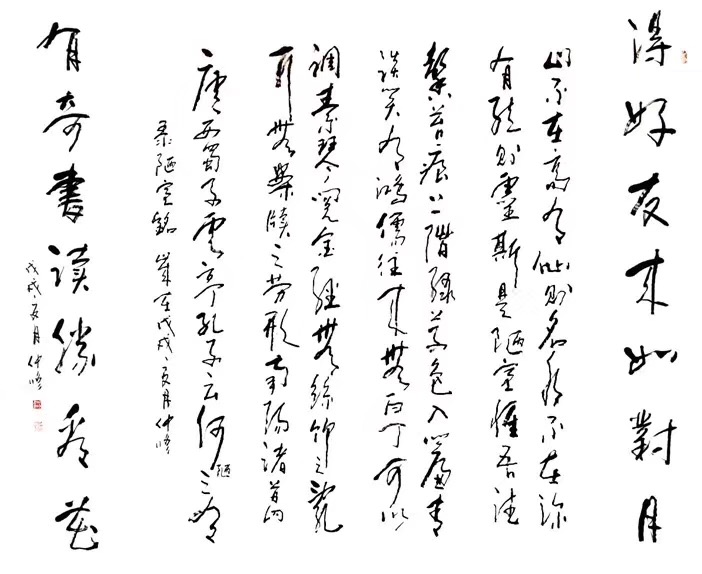 得好友来如對月
山不在高有仙则名水不在深
有龍则靈斯是陋室惟吾德
馨苔痕上階緑草色入簾青
谈笑有鴻儒往来無白丁可以
調素琴閲金經無絲竹之亂
耳無案牘之劳形南陽諸葛
廬西蜀子雲亭孔子云何陋之有
录陋室銘 歲在戊戌之夏月仲修
有奇書读勝看花
戊戌之夏月仲修